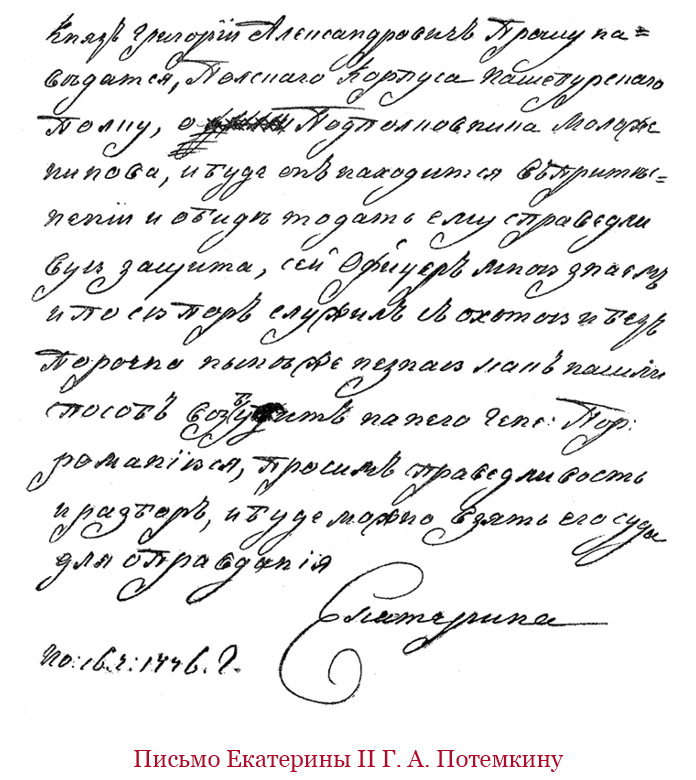 Князь Григорій Александровичъ Прошу на=
вѣдатся, Полскаго Корпуса Кашебурскаго
Полку, о Подполковника Моложе
нинова, и буде онъ находится въ притѣс=
неніи и обидѣ то дать ему справедли
вую защита, сей Офицеръ мною знаемъ
и по сих поръ служилъ с охотою и без
порочна ныноже незнаю какъ нашли
способъ возбудить на него Гене: Пор:
романіюся, просимъ праведливость
и разборъ, и буде можно взять его суды
для оправданія
Екатерина
Но: 16. ч: 1776. Г.
Письмо Екатерины II Г. А. Потемкину